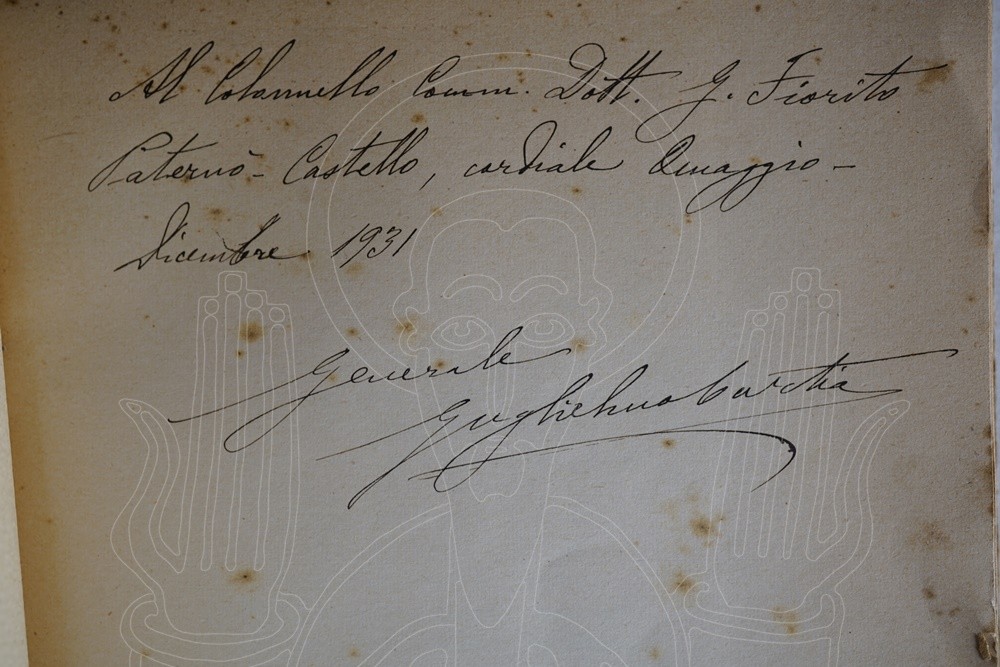 Al Colonnello Comm. Dott. G. Fiorito
Paternò - Castello, cordiale Omaggio -
Dicembre 1931
Generale
Guglielmo